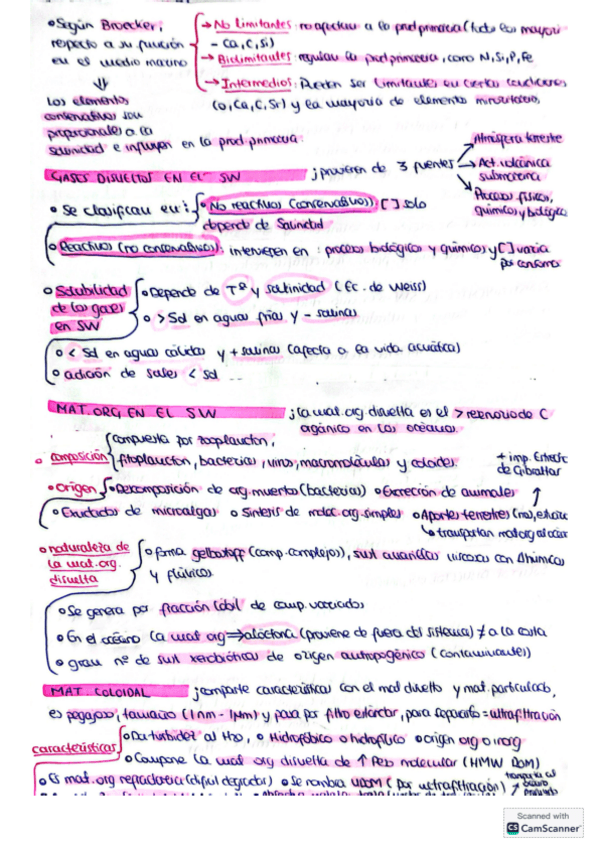 • Según Broecker, respecto a su función en el medio marino
→ No Limitantes: no afectan a la prod primaria (todos los mayori - Ca, C, Si)
→ Biolimitantes: regulan la prod primaria, como N, Si, P, Fe
→ Intermedios: Pueden ser limitantes en ciertas condiciones (o, Ca, C, Sr) y la mayoría de elementos minoritarios.
⇓
Los elementos conservativos son proporcionales a la salinidad e influyen en la prod. primaria.
GASES DISUELTOS EN EL SW ; provienen de 3 fuentes
→ Atmósfera terrestre
→ Act. volcánica submarina
→ Procesos físicos, químicos y biológico
• Se clasifican en:
No reactivos (conservativos): [ ] solo depende de Salinidad
Reactivos (no conservativos): intervienen en: procesos biológicos y químicos y [ ] varía por consumo
o Solubilidad de los gases en SW
o Depende de Tª y salinidad (Ec. de Weiss)
o > Sol en aguas frías y - salinas
o < Sol en aguas cálidas y + salinas (afecta a la vida acuática)
o adición de sales < sol ...
MAT. ORG EN EL SW ; la mat. org disuelta es el > reservorio de C orgánico en los océanos.
o composición
compuesta por zooplancton, fitoplancton, bacterias, virus, macromoléculas y coloides.
+ imp. Estrecho de Gibraltar
• Origen
o Descomposición de org. muertos (bacterias) o Excreción de animales
o Exudados de microalgas o Síntesis de molec. org. simples o Aportes terrestres
↳ transportan mat org al océano
o naturaleza de la mat. org. disuelta
o forma gelbstoff (comp. complejos), sust amarillas y flúvicos
o Se genera por fracción lábil de comp. variados
o En el océano la mat org ⇒ alóctona (proviene de fuera del sistema) ≠ a la costa
o gran nº de sust xenobióticas de origen antropogénico (contaminantes)
MAT. COLOIDAL ; comparte características con el mat disuelto y mat. particulado,
es pegajoso, tamaño (1 nm - 1 µm) y pasa por filtro estándar, para separarlo = ultrafiltración
características
o Da turbidez al H₂O, o Hidrofóbico o hidrofílico o origen org o inorg
o Compone la mat org disuelta de ↑ Peso molecular (HMW DOM)
o Es mat. org refractaria (difícil degradar) o Se nombra UDOM (por ultrafiltración)
Scanned with
CS CamScanner